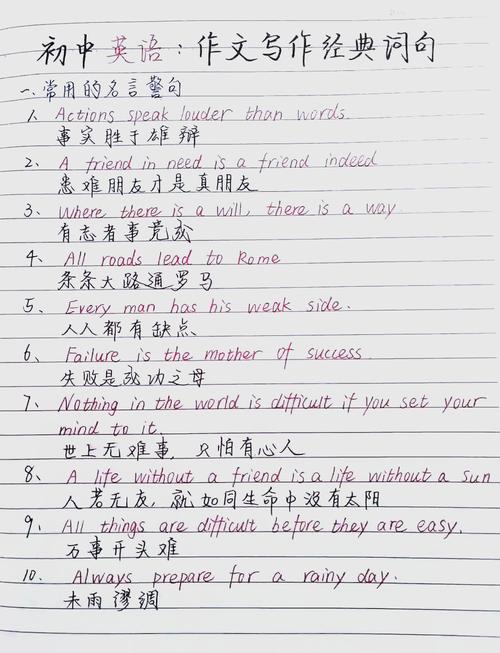 初中英语:作文写作经典词句
一、常用的名言警句
1、Actions speak louder than words.
事实胜于雄辩
2、A friend in need is a friend indeed
患难朋友才是真朋友
3、Where there is a will, there is a way
有志者事竟成
4、All roads lead to Rome
条条大路通罗马
5、Every man has his weak side.
人人都有缺点
6、Failure is the mother of success.
失败是成功之母
7、Nothing in the world is difficult if you set your
mind to it.
世上无难事,只怕有心人
8、A life without a friend is a life without a sun
人若无友,就如同生命中没有太阳
9、All things are difficult before they are easy.
万事开头难
10、Always prepare for a rainy day.
未雨谬调